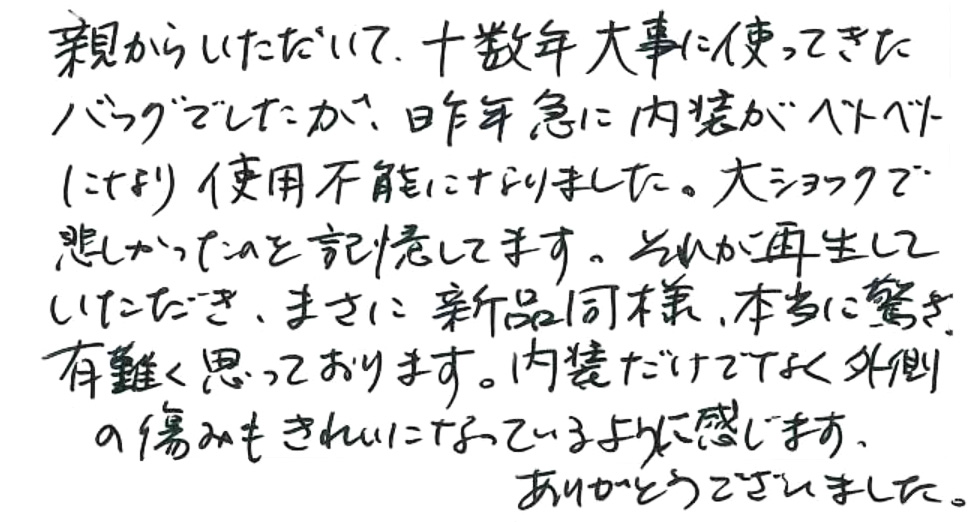 親からいただいて、十数年大事に使ってきた
バッグでしたが、昨年急に内装がベトベト
になり使用不能になりました。大ショックで
悲しかったのを記憶してます。それが再生して
いただき、まさに新品同様、本当に驚き、
有難く思っております。内装だけでなく外側
の傷みもきれいになっているように感じます、
ありがとうございました。